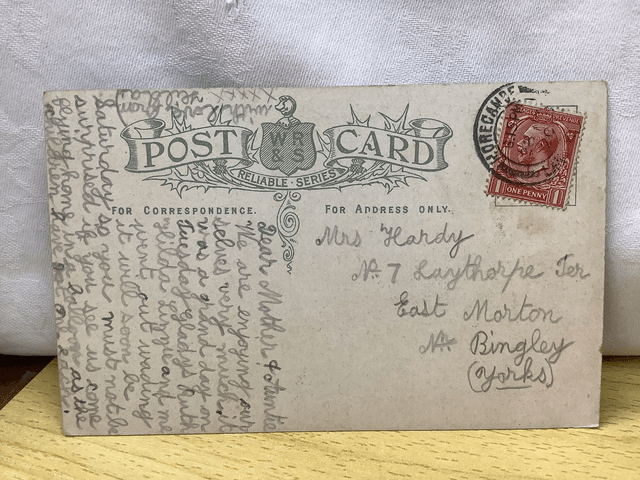 POST CARD
W R & S
RELIABLE SERIES
FOR CORRESPONDENCE.
FOR ADDRESS ONLY.
MORECAMBE
ONE PENNY
Mrs Hardy
No 7 Laythorpe Ter
East Morton
Nr Bingley
(Yorks)
Dear Mother & Auntie
We are enjoying our
selves very much it
was a grand day on
Tuesday gladys Ruth
and me
went out wading
it will soon be
Saturday so you must not be
surprised if you see us come
as the
with love
from
Hilda
XXXX